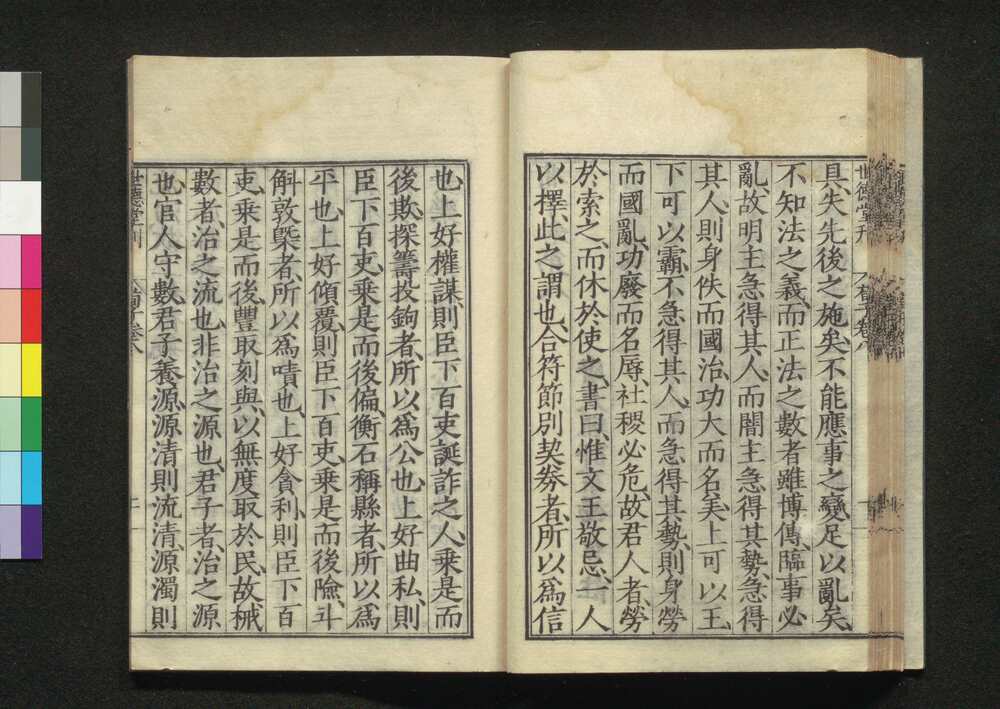 世德堂刊
荀子卷八
具失先後之施矣不能應事之變足以亂矣
不知法之義而正法之數者雖博傳臨事必
亂故明主急得其人而闇主急得其勢急得
其人則身佚而國治功大而名美上可以王
下可以霸不急得其人而急得其勢則身勞
而國亂功廢而名辱社稷必危故君人者勞
於索之而休於使之書曰惟文王敬忌一人
以擇此之謂也合符節別契券者所以爲信
也上好權謀則臣下百吏誕詐之人乘是而
後欺探籌投鉤者所以爲公也上好曲私則
臣下百吏乘是而後偏衡石稱縣者所以爲
平也上好傾覆則臣下百吏乘是而後險斗
斛敦槩者所以爲嘖也上好貪利則臣下百
吏乘是而後豐取刻與以無度取於民故械
數者治之流也非治之源也君子者治之源
也官人守數君子養源源清則流清源濁則
世德堂刊
荀子卷八